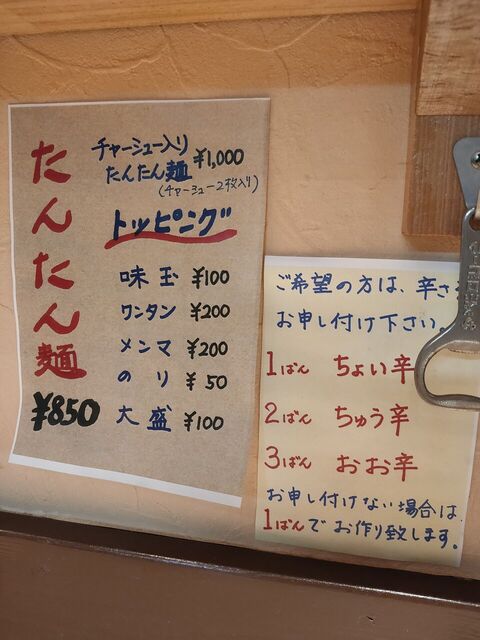 たんたん麺
¥850
チャーシュー入り
たんたん麺 ¥1,000
(チャーシュー2枚入り)
トッピング
味玉 ¥100
ワンタン ¥200
メンマ ¥200
のり ¥50
大盛 ¥100
ご希望の方は、辛さ
お申し付け下さい。
1ばん ちょい辛
2ばん ちゅう辛
3ばん おお辛
お申し付けない場合は
1ばんでお作り致します。